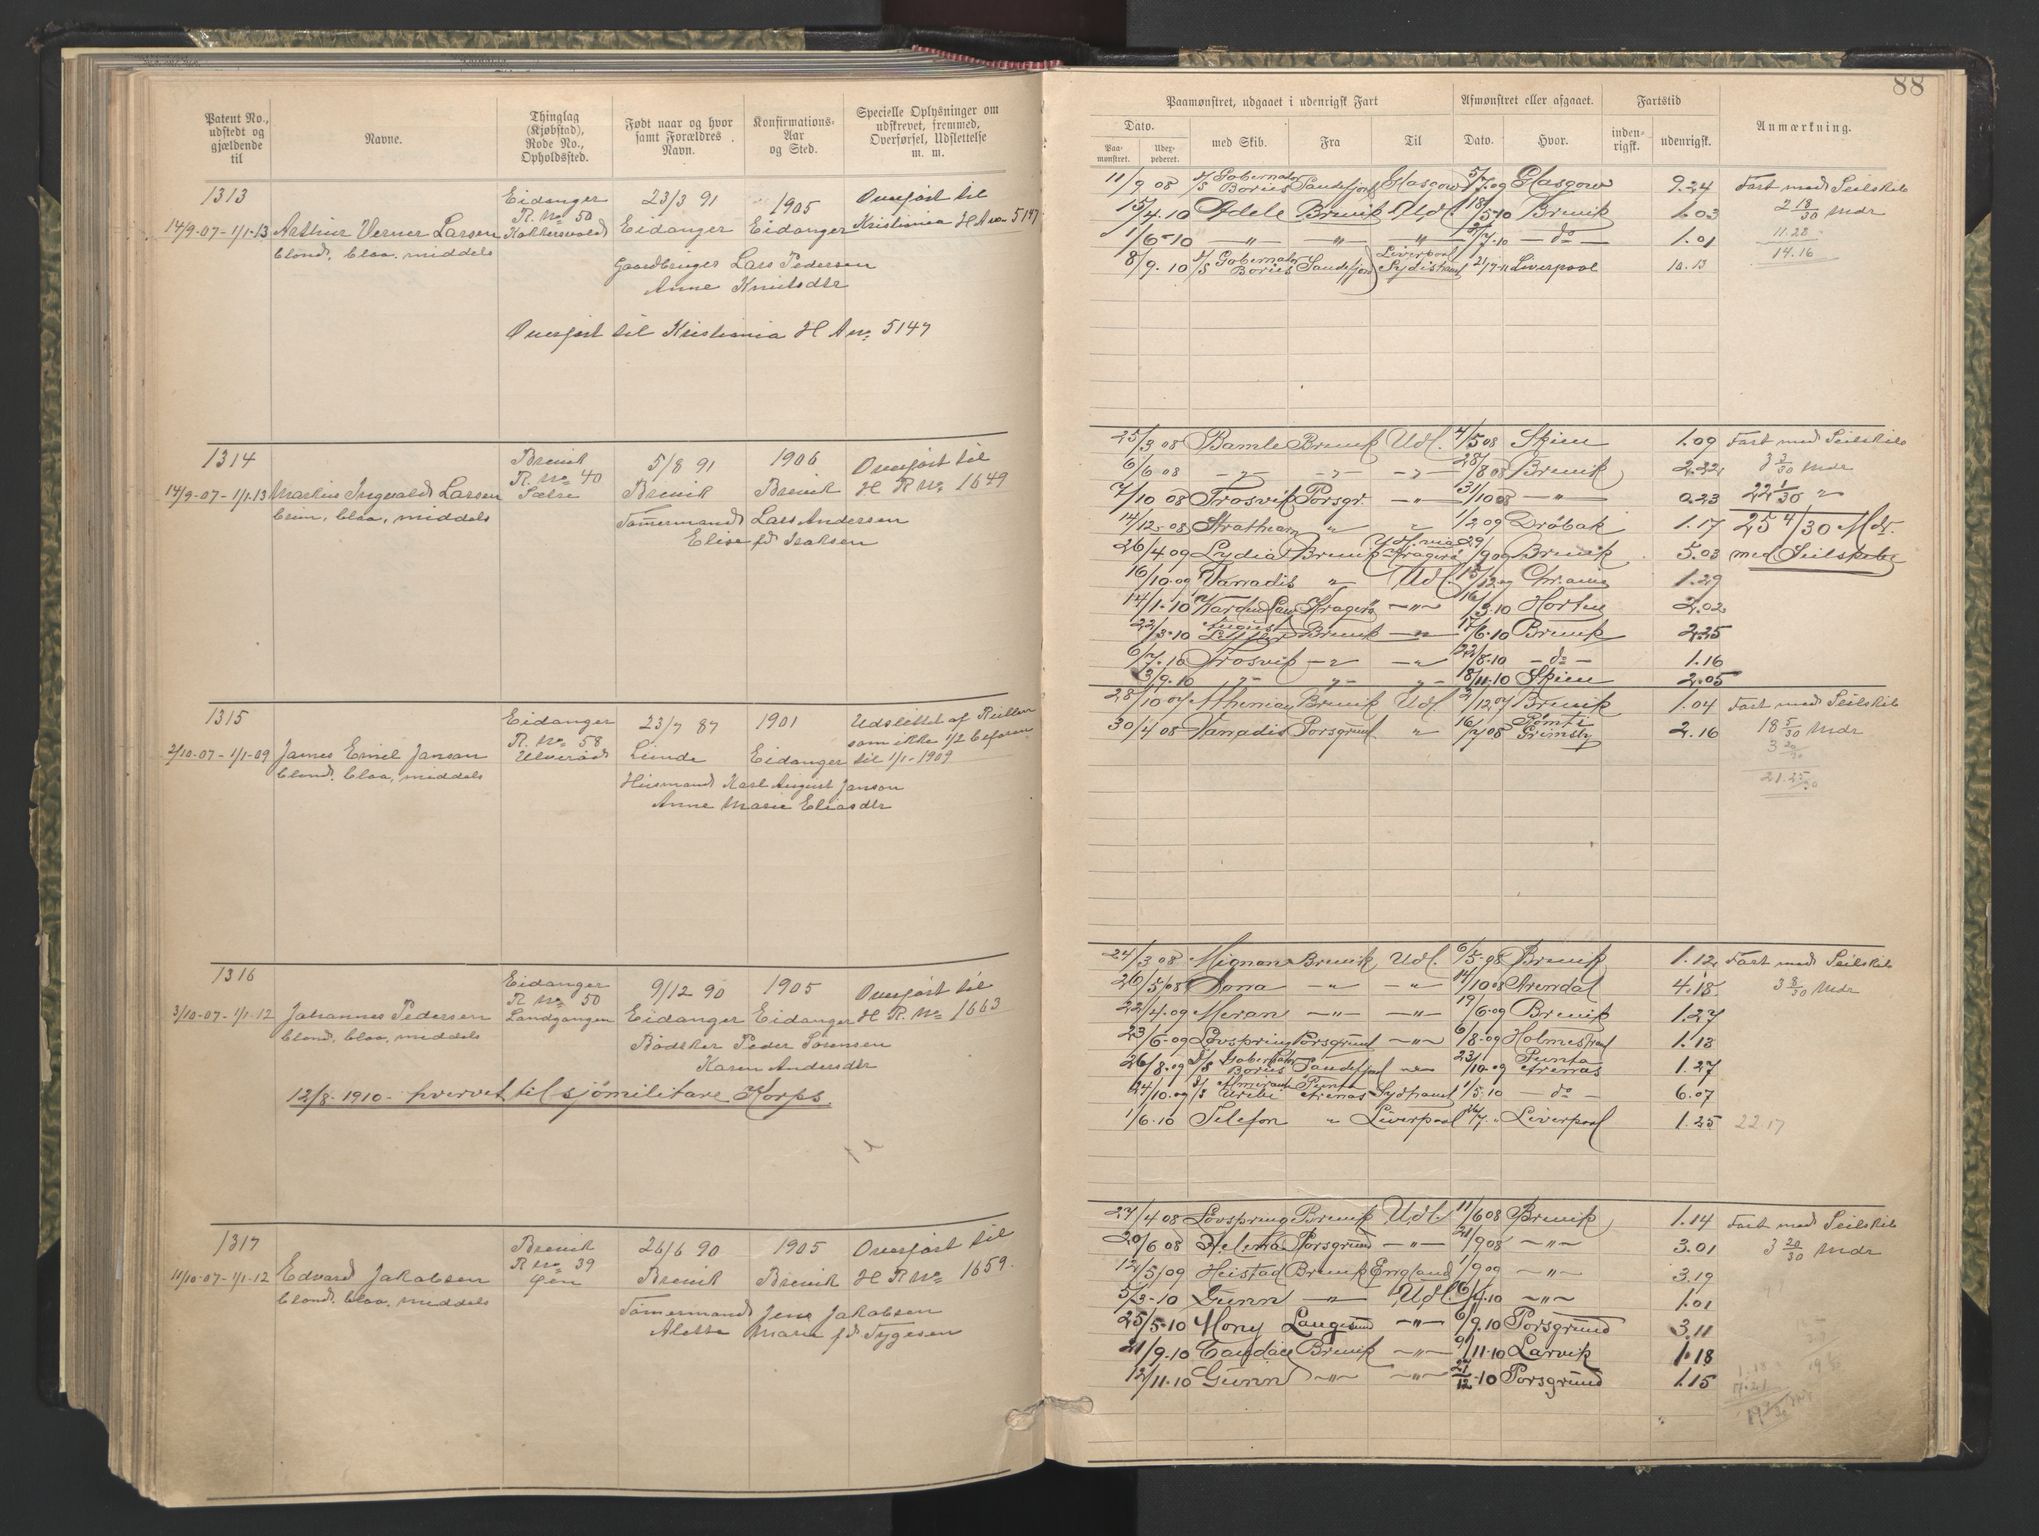 88
Patent No., udstedt og gjældende til
Navne.
Thinglag (Kjøbstad), Rode No., Opholdssted.
Født naar og hvor samt Forældres Navn.
Konfirmations-Aar og Sted.
Specielle Oplysninger om udskrevet, fremmed, Overførsel, Udslettelse m. m.
Paamønstret, udgaaet i udenrigsk Fart
Afmønstret eller afgaaet.
Fartstid
Anmærkning.
Dato.
Paamønstret.
Udexpederet.
med Skib.
Fra
Til
Dato.
Hvor.
indenrigsk.
udenrigsk.
1313
Eidanger
23/3 91
1905
Overført til
14/9-07-1/1-13 Arthur Verner Larsen
R. No 50
Eidanger Eidanger
Kristiania H A no 5147
blond, blaa, middels
Gaardbruger Lars Pedersen
Anne Knutsdtr
Overført til Kristiania H A no 5147
11/9 08 D/S Gobernator Bories Sandefjord Glasgow 5/7 09 Glasgow 9.24 Fart med Seilskib
15/4.10 Adele Brevik Udl. 18/5-10 Brevik 1.03 2 18/30 Mdr
1/6-10 —"— —"— " —do— 1.01 11.28
8/9.10 D/S Gobernator Bories Sandefjord Liverpool Sydishavet Liverpool 10.13 14.16
1314
Brevik
5/8 91
1906
Overført til
14/9-07-1/1-13 Martin Ingvald Larsen
R. No 40
Brevik
Brevik
H R No 1649
brun, blaa, middels
Tømermand Lars Andersen
Elise fd Isaksen
25/3 08 Bamle Brevik Udl. 4/5 08 Skien 1.09 Fart med Seilskib
6/6 08 —"— —"— —"— 28/8 08 Brevik 2.22 3 3/30 Mdr
7/10 08 Frosvik Porsgr. —"— 31/10 08 —"— 0.23 22 1/30 "
14/12-08 Strathearn " " 1/2 09 Drøbak 1.17 25 4/30 Mdr.
26/4 09 Lydia Brevik Udl. via Kragerø 29/9 09 Brevik 5.03 med Seilskibe
16/10-09 Vanadis " Udl. 15/12 09 Chrania 1.29
14/1-10 Kragerø —"— 16/3.10 Horten 2.02
22/3-10 August Leffler Brevik —"— 17/6-10 Brevik 2.25
6/7.10 Frosvik —"— —"— 22/8.10 —do— 1.16
3/9.10 "— "— "— 18/11-10 Skien 2.05
1315
Eidanger
23/7 87
1901
Udslettet af Rullen
2/10-07-1/1-09 James Emil Janson
R. No 58
Lunde
Eidanger
som ikke 1/2 befaren
til 1/1-1909
blond, blaa, middels
Husmand Karl August Janson
Anne Marie Eliasdtr
28/10 07 Athenian Brevik Udl. 2/12 07 Brevik 1.04 Fart med Seilskib
30/4 08 Vanadis Porsgrund " 16/7 08 Rømt i Grimsby 2.16 18 5/30 Mdr
3 20/30
21.25/30
1316
Eidanger
9/12 90
1905
Overført til
3/10-07-1/1-12 Johannes Pedersen
R No 50
Landgangen
Eidanger Eidanger
H R. No 1663
blond, blaa, middels
Bødker Peder Sørensen
Karen Andersdtr
12/8-1910- hvervet til sjømilitære Korps.
24/3 08 Mignon Brevik Udl. 6/5-08 Brevik 1.12 Fart med Seilskib
26/5 08 Dona " " 14/10 08 Arendal 4.18 3 8/30 Mdr
22/4-09 Meran —"— —"— 19/6-09 Brevik 1.27
23/6-09 Løvspring Porsgrund —"— 6/8-09 Holmestrand 1.13
26/8-09 D/S Gobernator Bories Sandefjord —"— 23/10-09 Punta Arenas 1.27
24/10.09 D/S Almirante Uribe Punta Arenas Sydhavet 1/5.10 —do— 6.07
1/6.10 Telefon " Liverpool 26/7 " Liverpool 1.25 22.17
1317
Brevik
26/6 90
1905
Overført til
11/10-07-1/1-12 Edvard Jakobsen
R No 39
Øen
Brevik
Brevik
H R No 1659.
blond, blaa, middels
Tømermand Jens Jakobsen
Alette Marie fd Tygesen
27/4 08 Løvspring Brevik Udl. 11/6 08 Brevik 1.14 Fart med Seilskib
20/6 08 Helena Porsgrund —"— 21/9 08 —"— 3.01 3 20/30 Mdr
12/5/09 Heistad Brevik England 1/9 09 —"— 3.19
5/3-10 Gunn —"— Udl. 6/4.10 —"— 1.01
25/5-10 Mony Langesund —"— 6/9.10 Porsgrund 3.11
21/9.10 Brevik —"— 9/11-10 Larvik 1.18
12/11-10 Gunn —"— —"— 27/12-10 Porsgrund 1.15